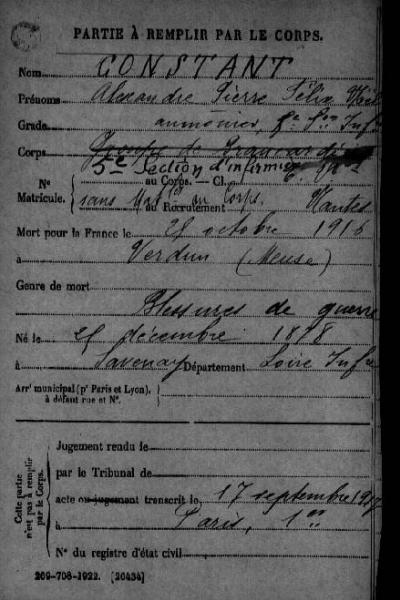 PARTIE À REMPLIR PAR LE CORPS.
Nom CONSTANT
Prénoms Alexandre Pierre Félix Noël
Grade aumonier,
Corps Groupe de Brancardiers
5e Section d'infirmiers
Nº Matricule. au Corps. — Cl.
sans Nº au Corps.
au Recrutement Nantes
Mort pour la France le 25 octobre 1916
à Verdun (Meuse)
Genre de mort
Blessures de guerre
Né le 25 décembre 1878
à Savenay Département Loire Infre
Arrt municipal (pr Paris et Lyon), à défaut rue et Nº.
Cette partie n'est pas à remplir par le Corps.
Jugement rendu le
par le Tribunal de
acte ou jugement transcrit le 17 septembre 1917
à Paris, 1er
Nº du registre d'état civil
269-708-1922. [26434]